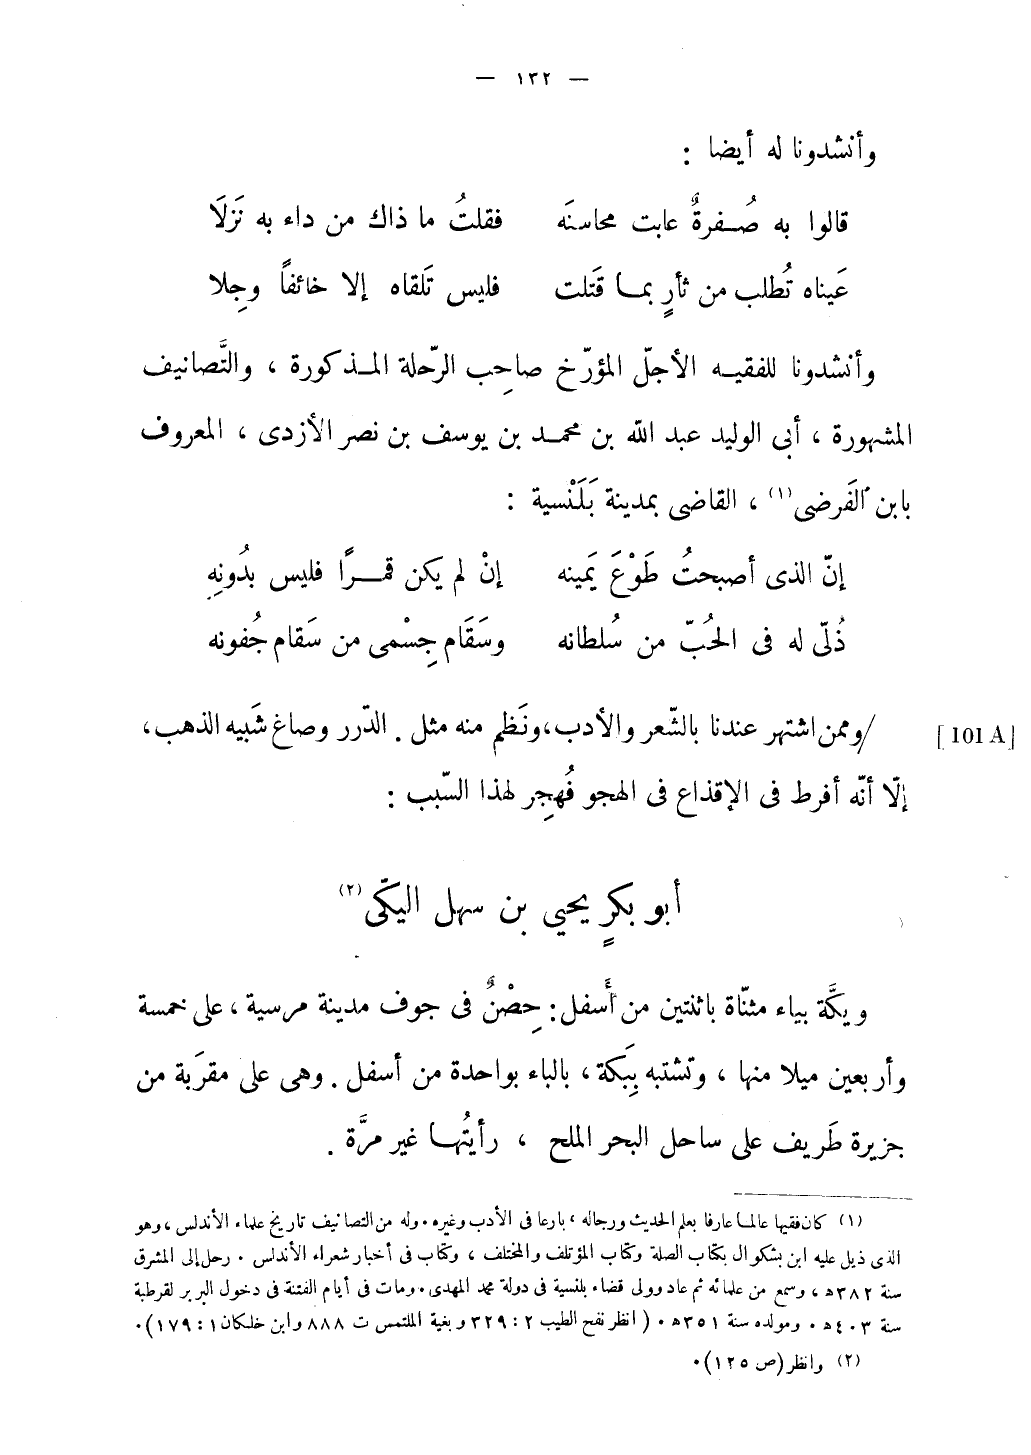 — ١٣٢ —
وأنشدونا له أيضا :
قالوا به صُـفرةٌ عابت محاسنَه فقلتُ ما ذاك من داء به نَزلَا
عَيناه تُطلب من ثأرٍ بمـا قَتلت فليس تَلقاه إلا خائفاً وجِلا
وأنشدونا للفقيـه الأجلّ المؤرّخ صاحِب الرّحلة المـذكورة ، والتَّصانيف
المشهورة ، أبى الوليد عبد الله بن محمـد بن يوسف بن نصر الأزدى ، المعروف
بابن الفَرضى(١) ، القاضى بمدينة بَلَنْسية :
إنّ الذى أصبحتُ طَوْعَ يَمينه إنْ لم يكن قمـــرًا فليس بدُونِهِ
ذُلّى له فى الحُبّ من سُلطانه وسَقَام جِسْمى من سَقام جُفونه
[101 A] /وممن اشتهر عندنا بالشّعر والأدب، ونَظم منه مثل . الدّرر وصاغ شَبيه الذهب،
إلّا أنّه أفرط فى الإقذاع فى الهجو فُهجِر لهذا السّبب :
أبو بكرٍ يحيى بن سهل اليكّى(٢)
ويكَّة بياء مثنّاة باثنتين من أَسفل: حِصْنٌ فى جوف مدينة مرسية ، على خمسة
وأربعين ميلا منها ، وتشتبه بِبَكة ، بالباء بواحدة من أسفل . وهى على مقرَبة من
جزيرة طَريف على ساحل البحر الملح ، رأيتُهـا غير مرَّة .
(١) كان فقيها عالمـا عارفا بعلم الحديث ورجاله ، بارعا فى الأدب وغيره . وله من التصانيف تاريخ علماء الأندلس ، وهو
الذى ذيل عليه ابن بشكوال بكتاب الصلة وكتاب المؤتلف والمختلف ، وكتاب فى أخبار شعراء الأندلس . رحل إلى المشرق
سنة ٣٨٢ه ، وسمع من علمائه ثم عاد وولى قضاء بلنسية فى دولة محمد المهدى . ومات فى أيام الفتنة فى دخول البربر لقرطبة
سنة ٤٠٣ه . ومولده سنة ٣٥١ه . ( انظر نفح الطيب ٢ : ٣٢٩ وبغية الملتمس ت ٨٨٨ وابن خلكان ١ : ١٧٩) .
(٢) وانظر (ص ١٢٥) .